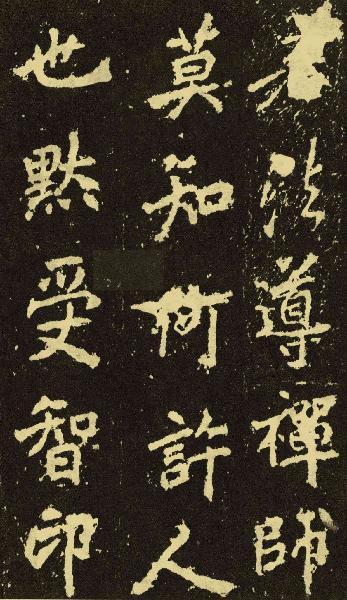 法導禪師
莫知何許人
也默受智印